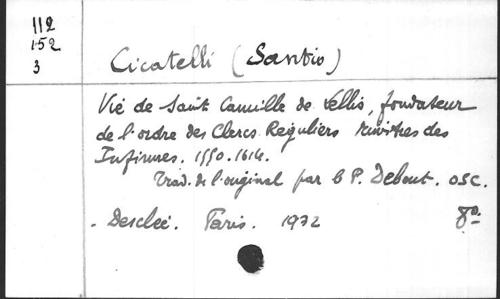 112
152
3
Cicatelli (Santio)
Vie de Saint Camille de Lellis, fondateur
de l'ordre des Clercs Réguliers Ministres des
Infirmes. 1550-1614.
Trad. de l'original par le P. Debout. OSC.
- Desclée. Paris. 1932 8º